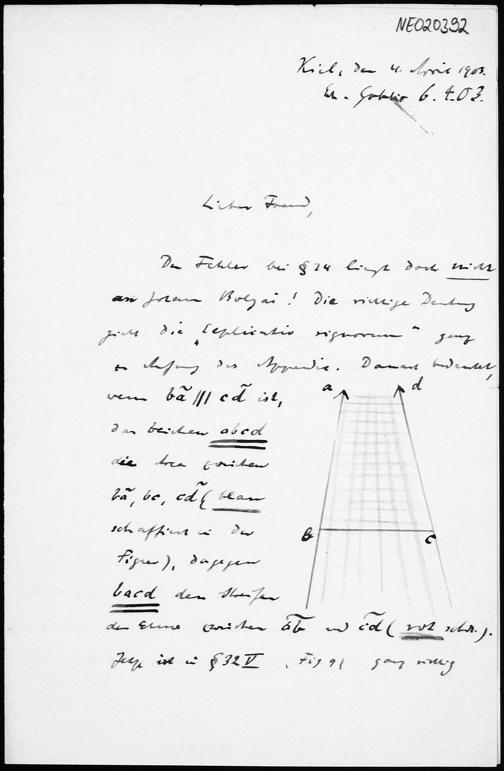 NE020392
Kiel, den 4. April 1903.
Eh - 6.4.03.
Lieber Freund,
Der Fehler bei §24 liegt doch nicht
an Johann Bolyai! Die richtige Deutung
giebt die "Explicatio signorum" ganz
am Anfang des Appendix. Danach bedeutet,
a d
wenn bã ||| cd̃ ist,
das Zeichen abcd
die Area zwischen
bã, bc, cd̃ (blau
schraffiert in der
B C
Figur), dagegen
bacd den Streifen
der Ebene zwischen ab und cd (rot schr.).
Jetzt ist in §32 V (Fig 9) ganz richtig